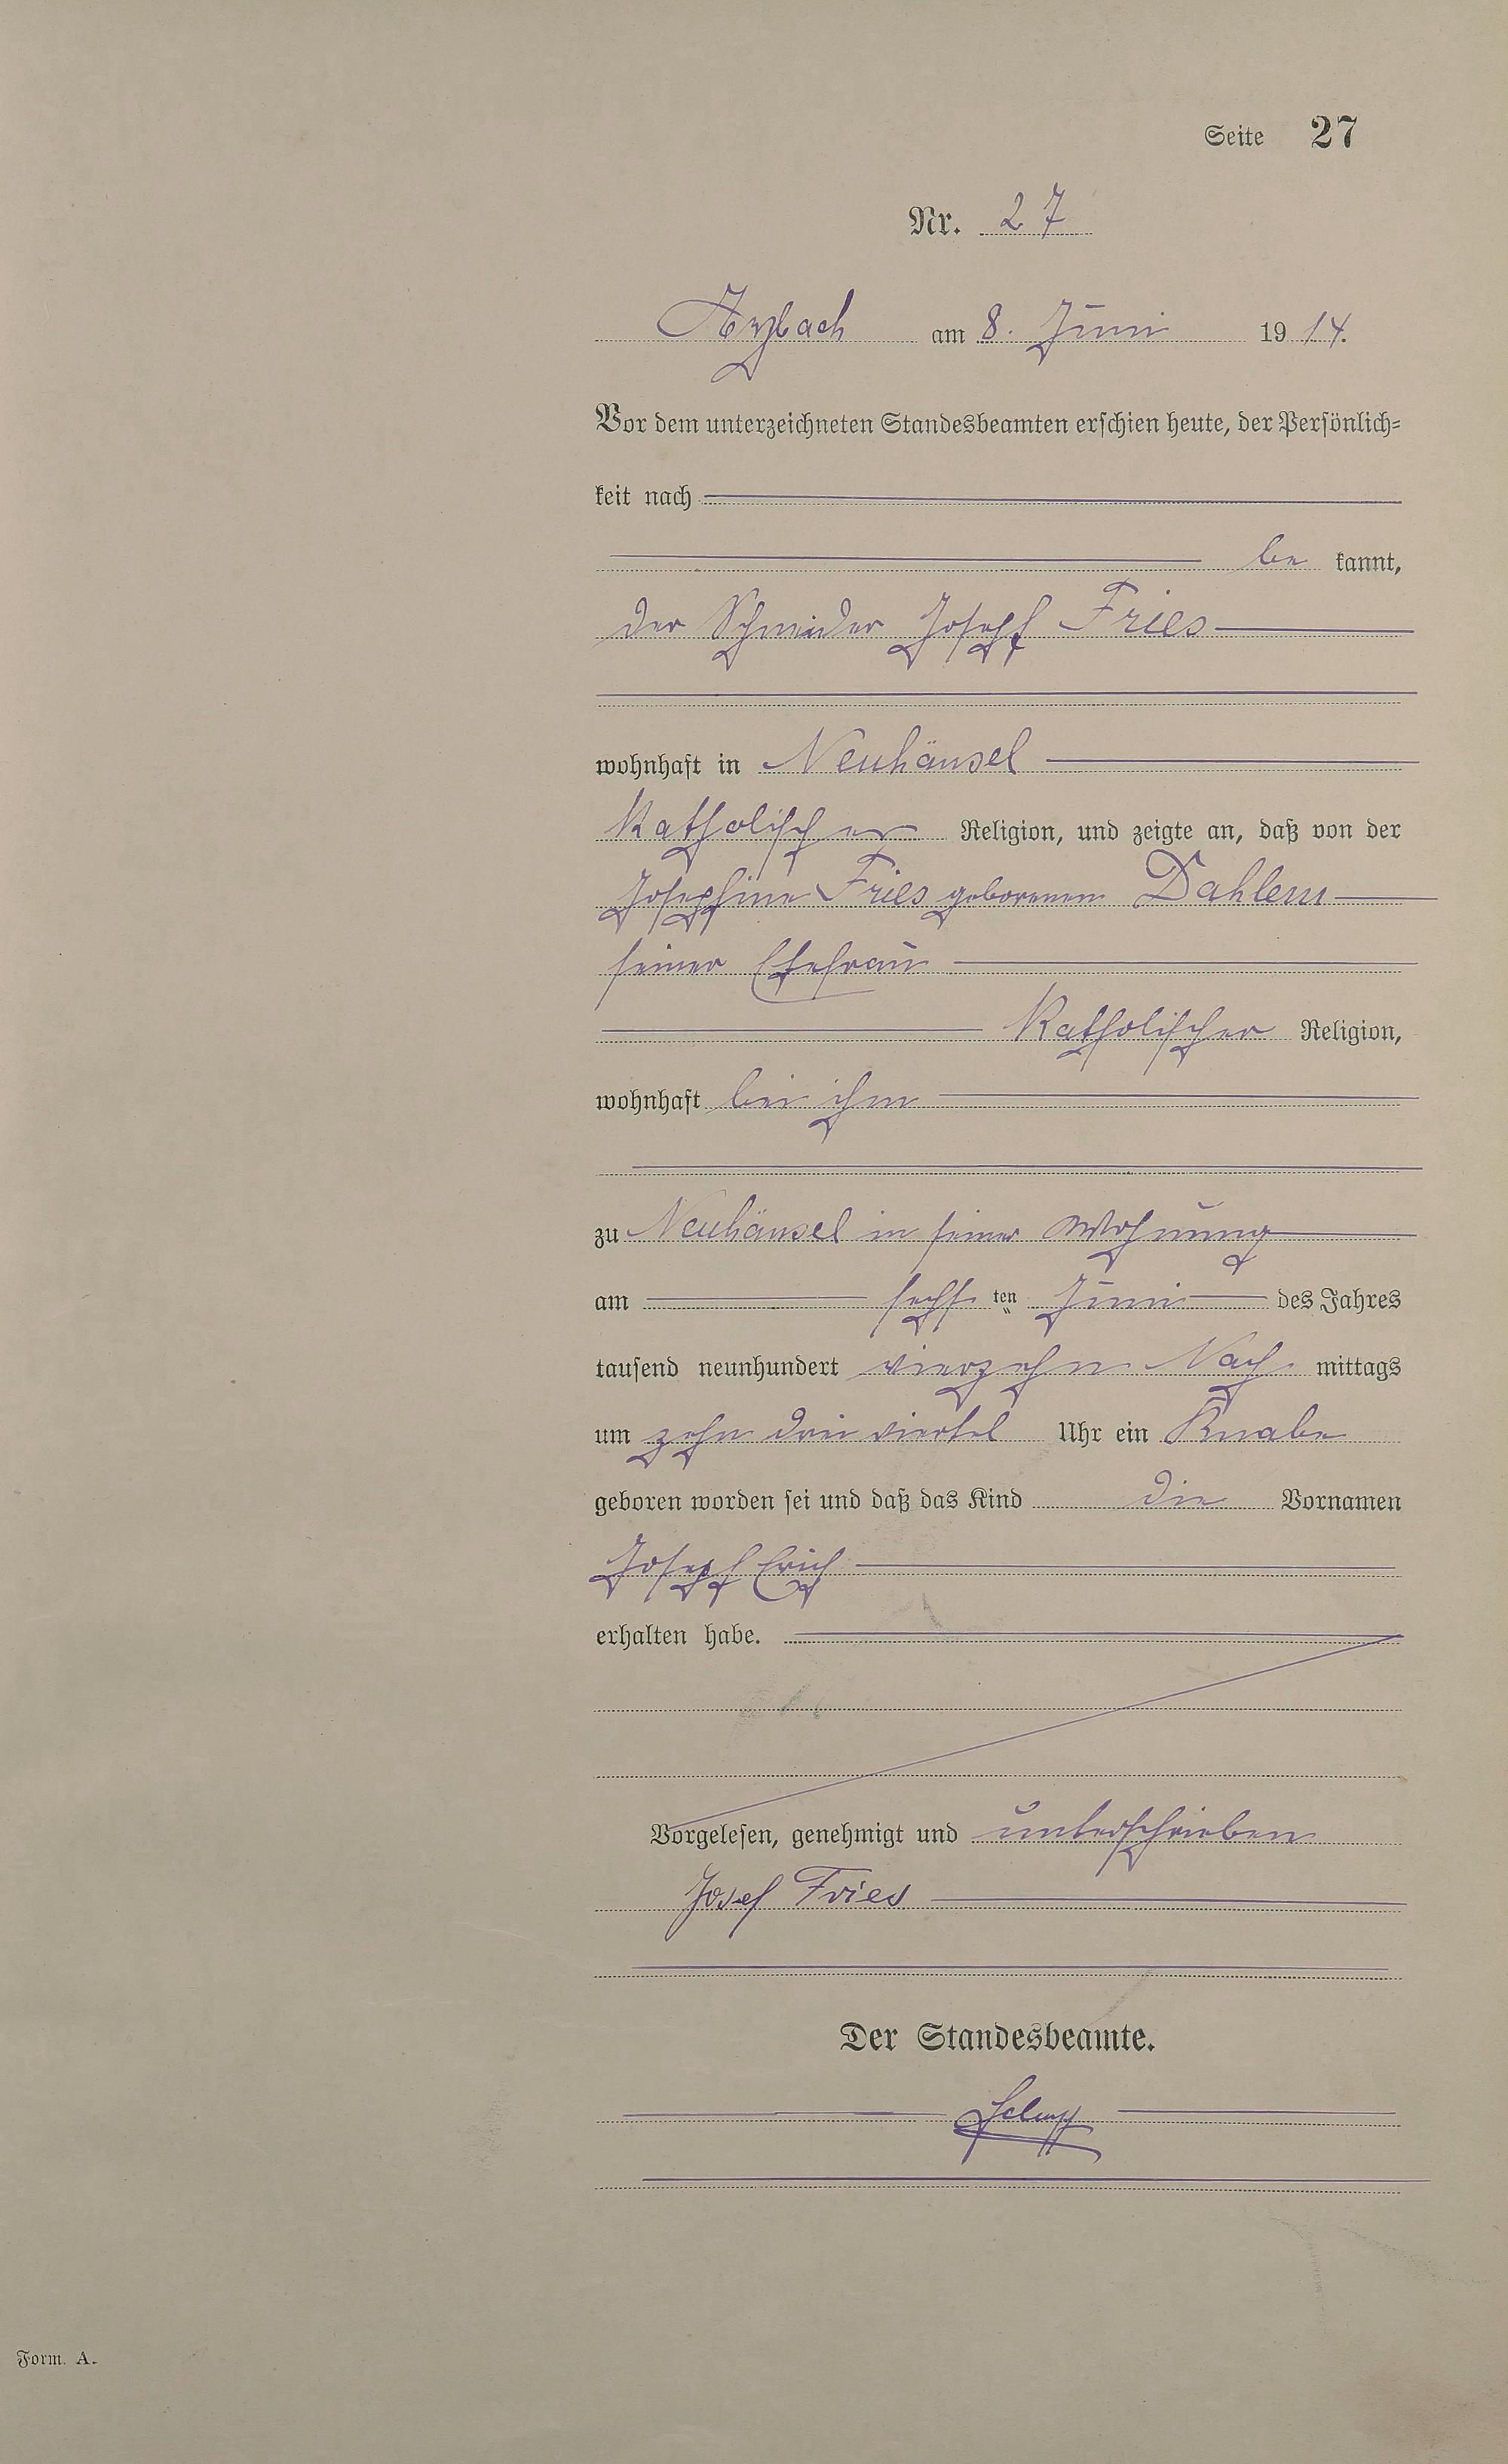 Seite 27
Nr. 27
Arzbach am 8. Juni 1914.
Vor dem unterzeichneten Standesbeamten erschien heute, der Persönlich=
keit nach
be kannt,
der Schneider Joseph Fries
wohnhaft in Neuhäusel
Katholischer Religion, und zeigte an, daß von der
Josephine Fries geborenen Dahlem
seiner Ehefrau
Katholischer Religion,
wohnhaft bei ihm
zu Neuhäusel in seiner Wohnung
am sechs ten Juni des Jahres
tausend neunhundert vierzehn Nach mittags
um zehn drei viertel Uhr ein Knabe
geboren worden sei und daß das Kind die Vornamen
Joseph Erich
erhalten habe.
Vorgelesen, genehmigt und unterschrieben
Josef Fries
Der Standesbeamte.
Form. A.